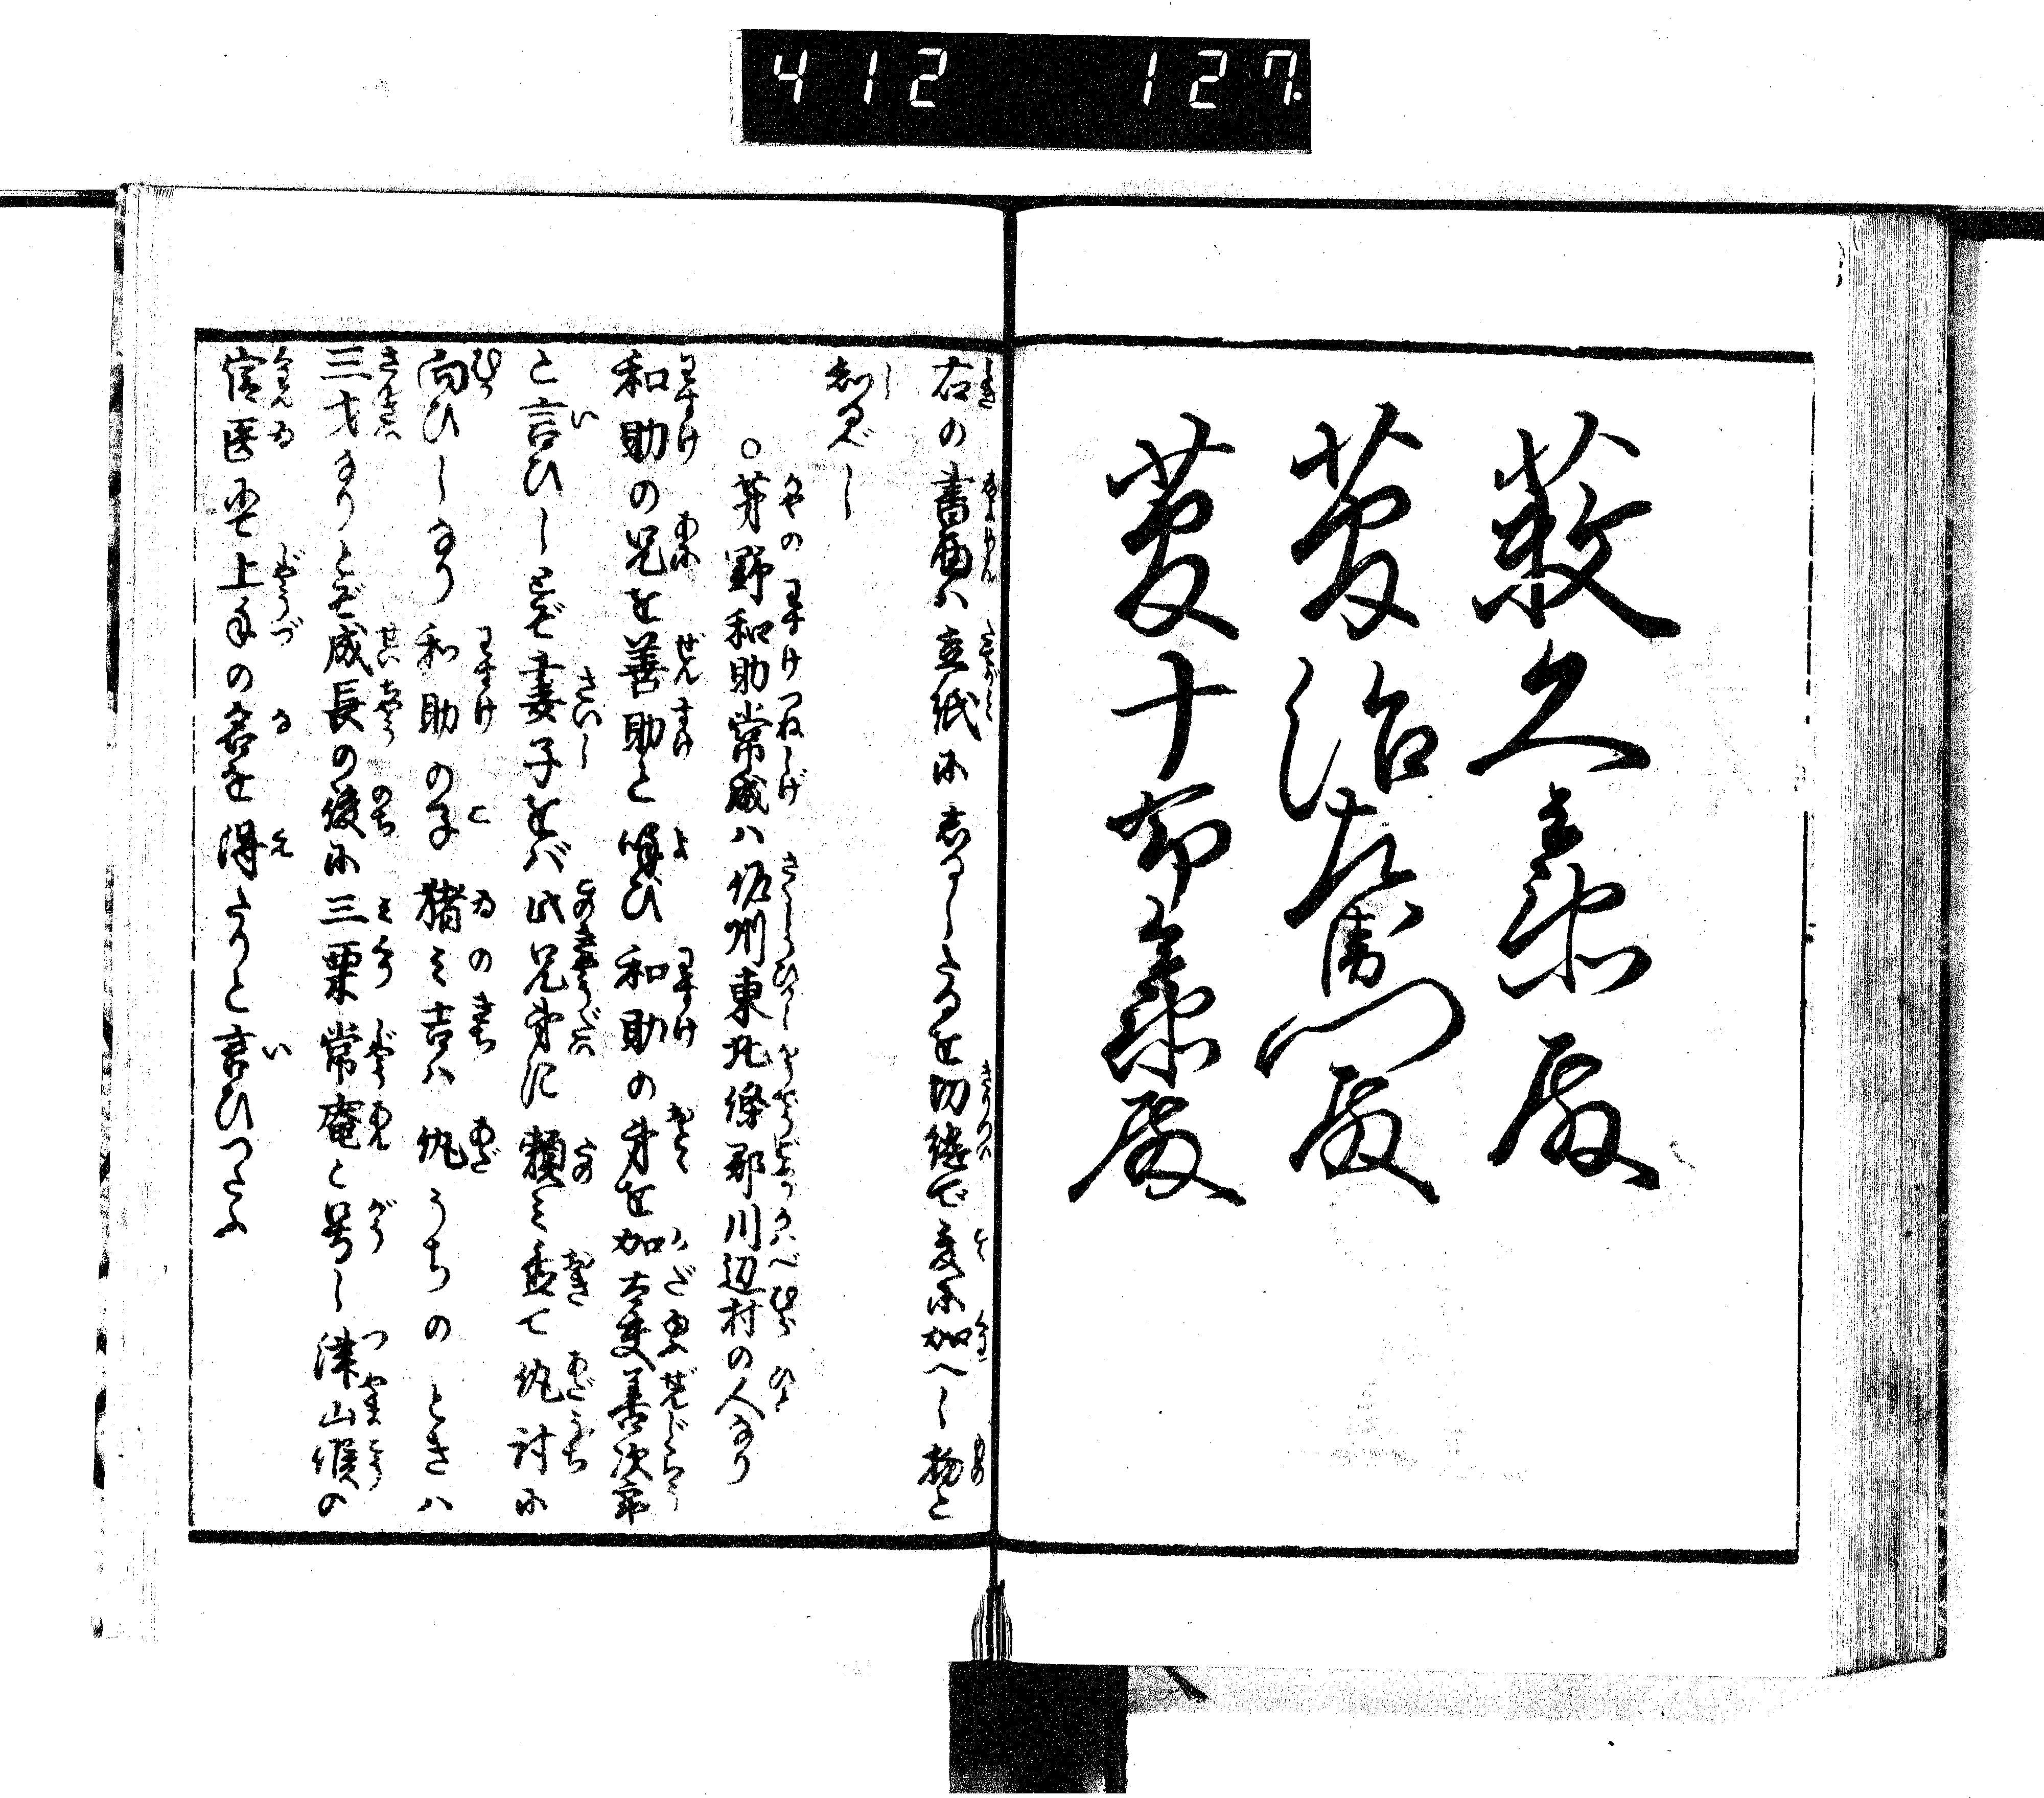 412 127.
藪久兵衛殿
菅治左衛門殿
菅十郎兵衛殿
右の書面ハ立紙に志るしたるを切継で爰に加へし物と
知るべし
○茅野和助常成ハ作州東北條郡川辺村の人なり
和助の兄を善助と呼び和助の弟を加古吏善次郎
と言ひし是ぞ妻子をバ此兄弟に頼ミ置て仇討に
向ひしなり和助の子猪之吉ハ仇うちのときハ
三才なりとぞ成長の後に三栗常庵と号し津山侯の
官医にて上手の名を得たりと言ひつたふ